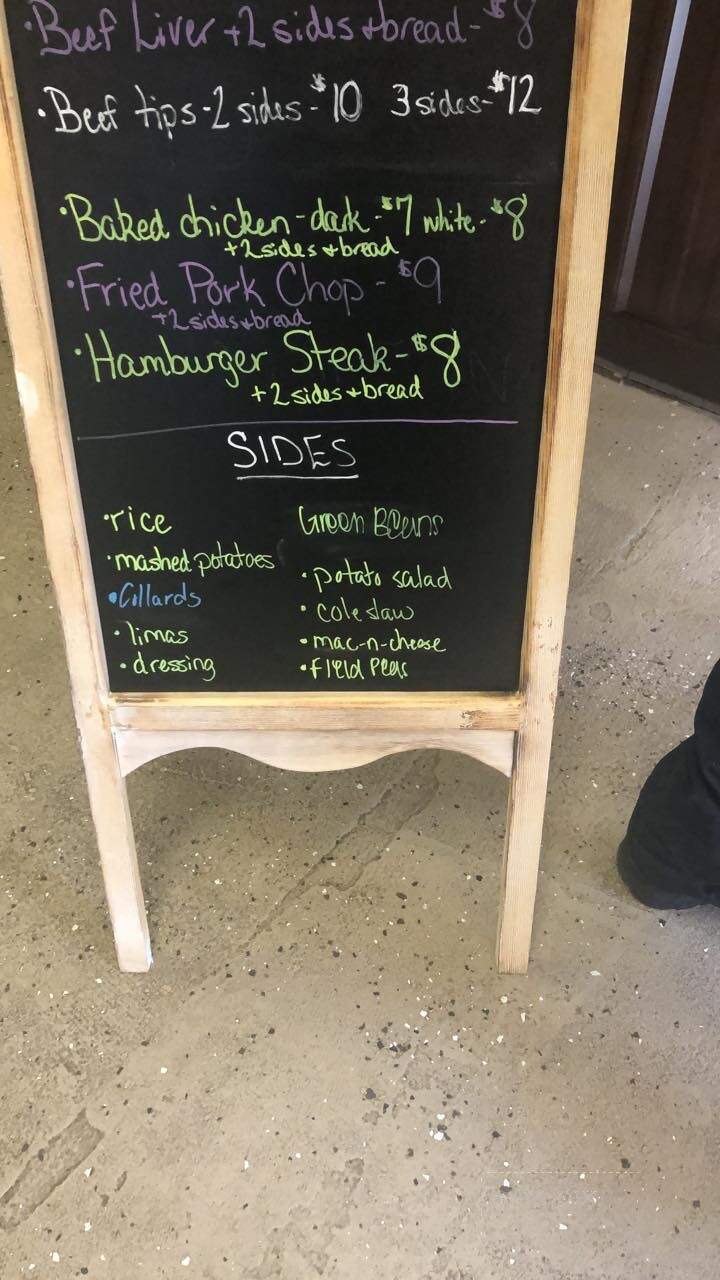 ·Beef Liver +2 sides +bread - $8
·Beef tips - 2 sides - $10 3 sides - $12
·Baked chicken - dark - $7 white - $8
+2 sides + bread
·Fried Pork Chop - $9
+2 sides + bread
·Hamburger Steak - $8
+2 sides + bread
SIDES
·rice
·mashed potatoes
·Collards
·limas
·dressing
Green Beans
·potato salad
·cole slaw
·mac-n-cheese
·field peas